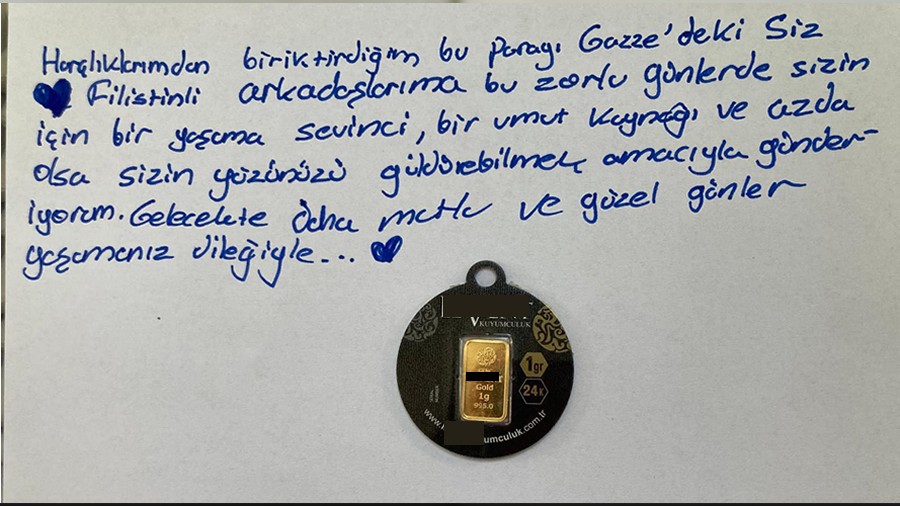 Harçlıklarımdan biriktirdiğim bu parayı Gazze'deki Siz
Filistinli arkadaşlarıma bu zorlu günlerde sizin
için bir yaşama sevinci, bir umut kaynağı ve azda
olsa sizin yüzünüzü güldürebilmek amacıyla gönder-
iyorum. Gelecekte daha mutlu ve güzel günler
yaşamanız dileğiyle...
KUYUMCULUK
1gr
24K
Gold
1g
995.0
www.
umculuk.com.tr